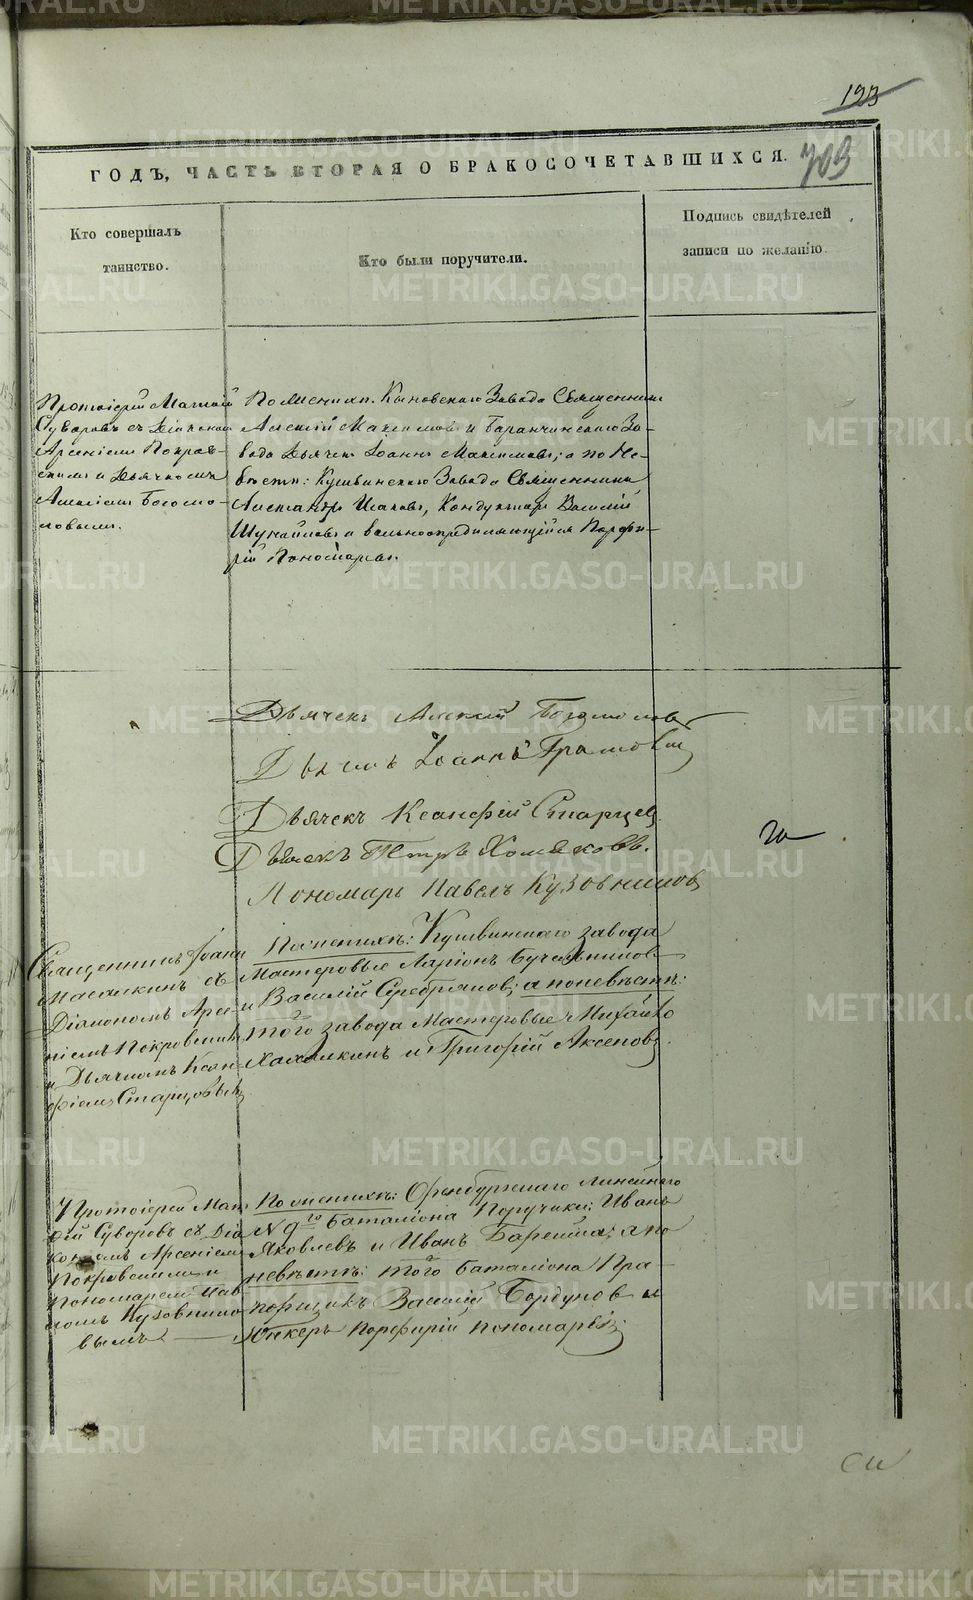 123
703
ГОДЪ, ЧАСТЬ ВТОРАЯ О БРАКОСОЧЕТАВШИХСЯ.
Кто совершалъ
таинство.
Кто были поручители.
Подпись свидѣтелей
записи по желанію.
Протоіерей Матѳій
Суворовъ съ Діакономъ
Арсеніемъ Покров-
скимъ и Дьячкомъ
Алексіемъ Богомо-
ловымъ.
По женихѣ: Кыновскаго Завода Священникъ
Алексій Максимовъ и Баранчинскаго За-
вода Дьячекъ Іоаннъ Максимовъ; а по Не-
вѣстѣ: Кушвинскаго Завода Священникъ
Александръ Исаковъ, Кондукторъ Василій
и вольноопредѣляющійся Порфи-
рій Пономаревъ.
Дьячекъ Алексій Богомоловъ
Дьячекъ Іоаннъ
Дьячекъ Ксанфій Старцев
Дьячекъ Петръ Хомяковъ.
Пономарь Павелъ Кузовниковъ
Священникъ Іоаннъ
съ
Діакономъ Арсе-
ніемъ Покровскимъ
и Дьячкомъ Ксан-
фіемъ Старцовымъ
По женихѣ: Кушвинскаго завода
Мастеровые Ларіонъ
и Василій Серебряков; а по невѣстѣ:
того завода Мастеровые Михайло
и Григорій Аксенов.
Протоіерей Мат-
ѳій Суворовъ съ Діа-
кономъ Арсеніемъ
Покровскимъ и
пономаремъ Пав-
ломъ Кузовнико-
вымъ
По женихѣ: Оренбургскаго линейнаго
N 9го баталіона Поручики: Иванъ
Яковлевъ и Иванъ а по
невѣстѣ: того баталіона Пра-
порщикъ Василій и
Юнкеръ Порфирій Пономаревъ.